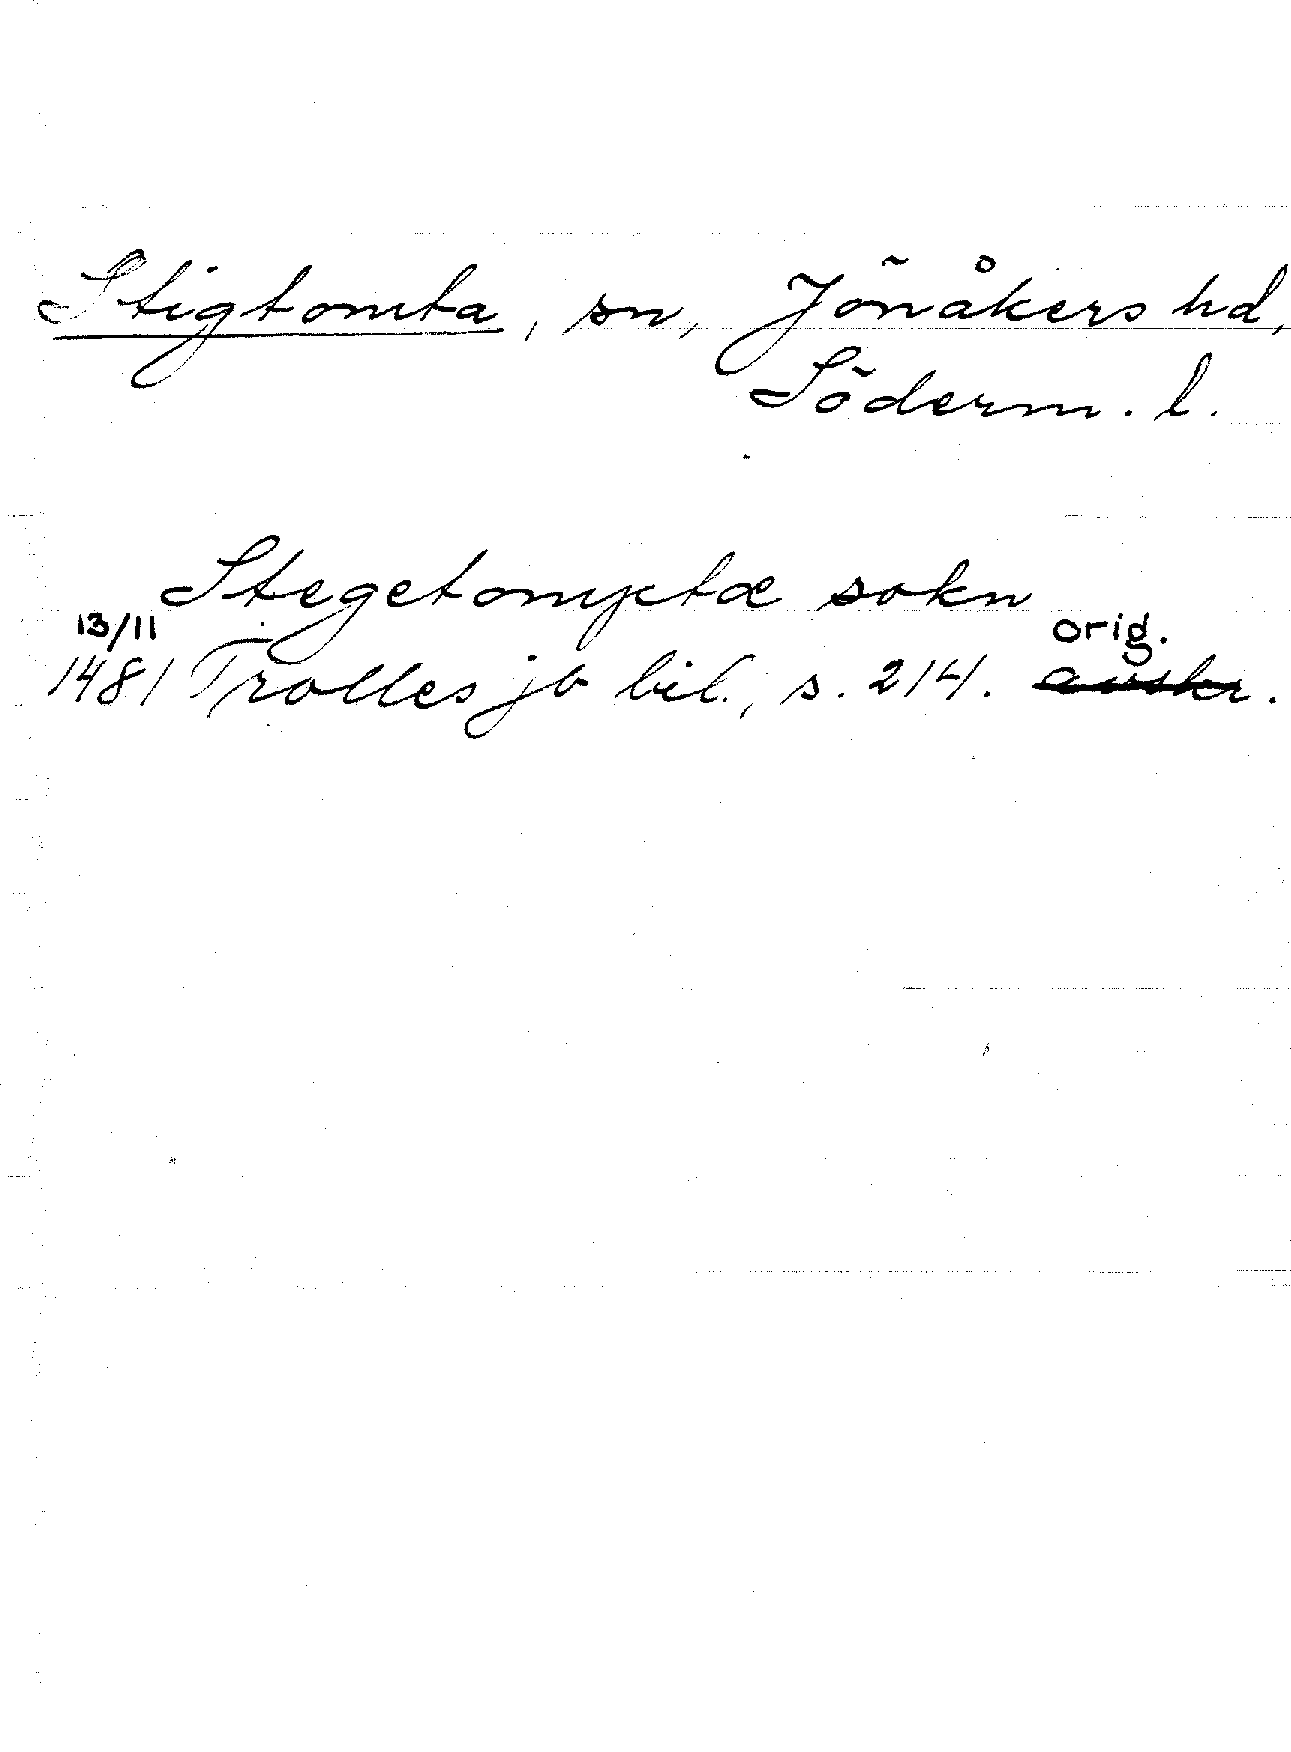 Stigtomta, sn, Jönåkers hd,
Söderm. l.
Stegetomptæ sokn
13/11 orig.
1481 Trolles jb bil., s. 214. avskr.